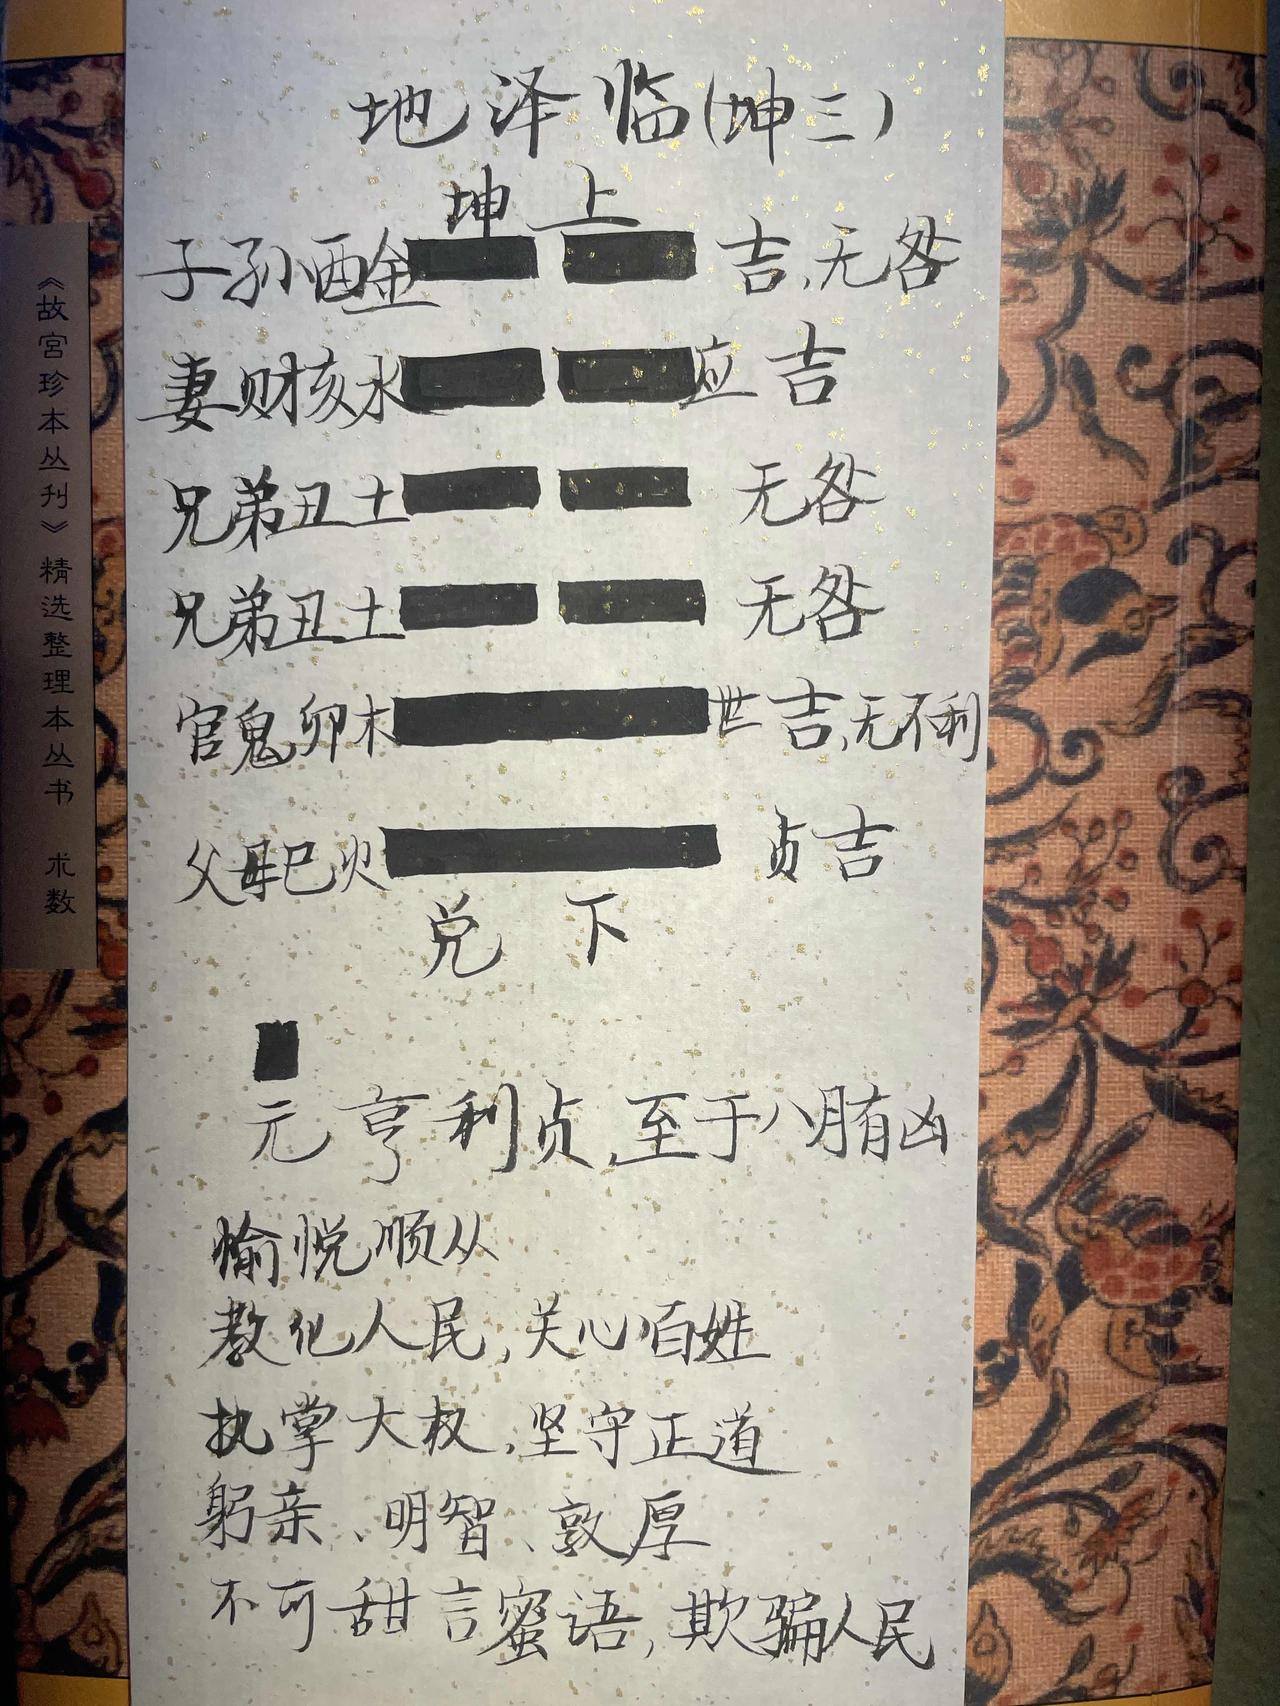 地泽临(坤三)
坤上
子孙酉金 吉、无咎
妻财亥水 应 吉
兄弟丑土 无咎
兄弟丑土 无咎
官鬼卯木 世 吉,无不利
父母巳火 贞吉
兑下
元亨利贞,至于八月有凶
愉悦顺从
教化人民,关心百姓
执掌大权,坚守正道
躬亲、明智、敦厚
不可甜言蜜语,欺骗人民
《故宫珍本丛刊》精选整理本丛书 术数